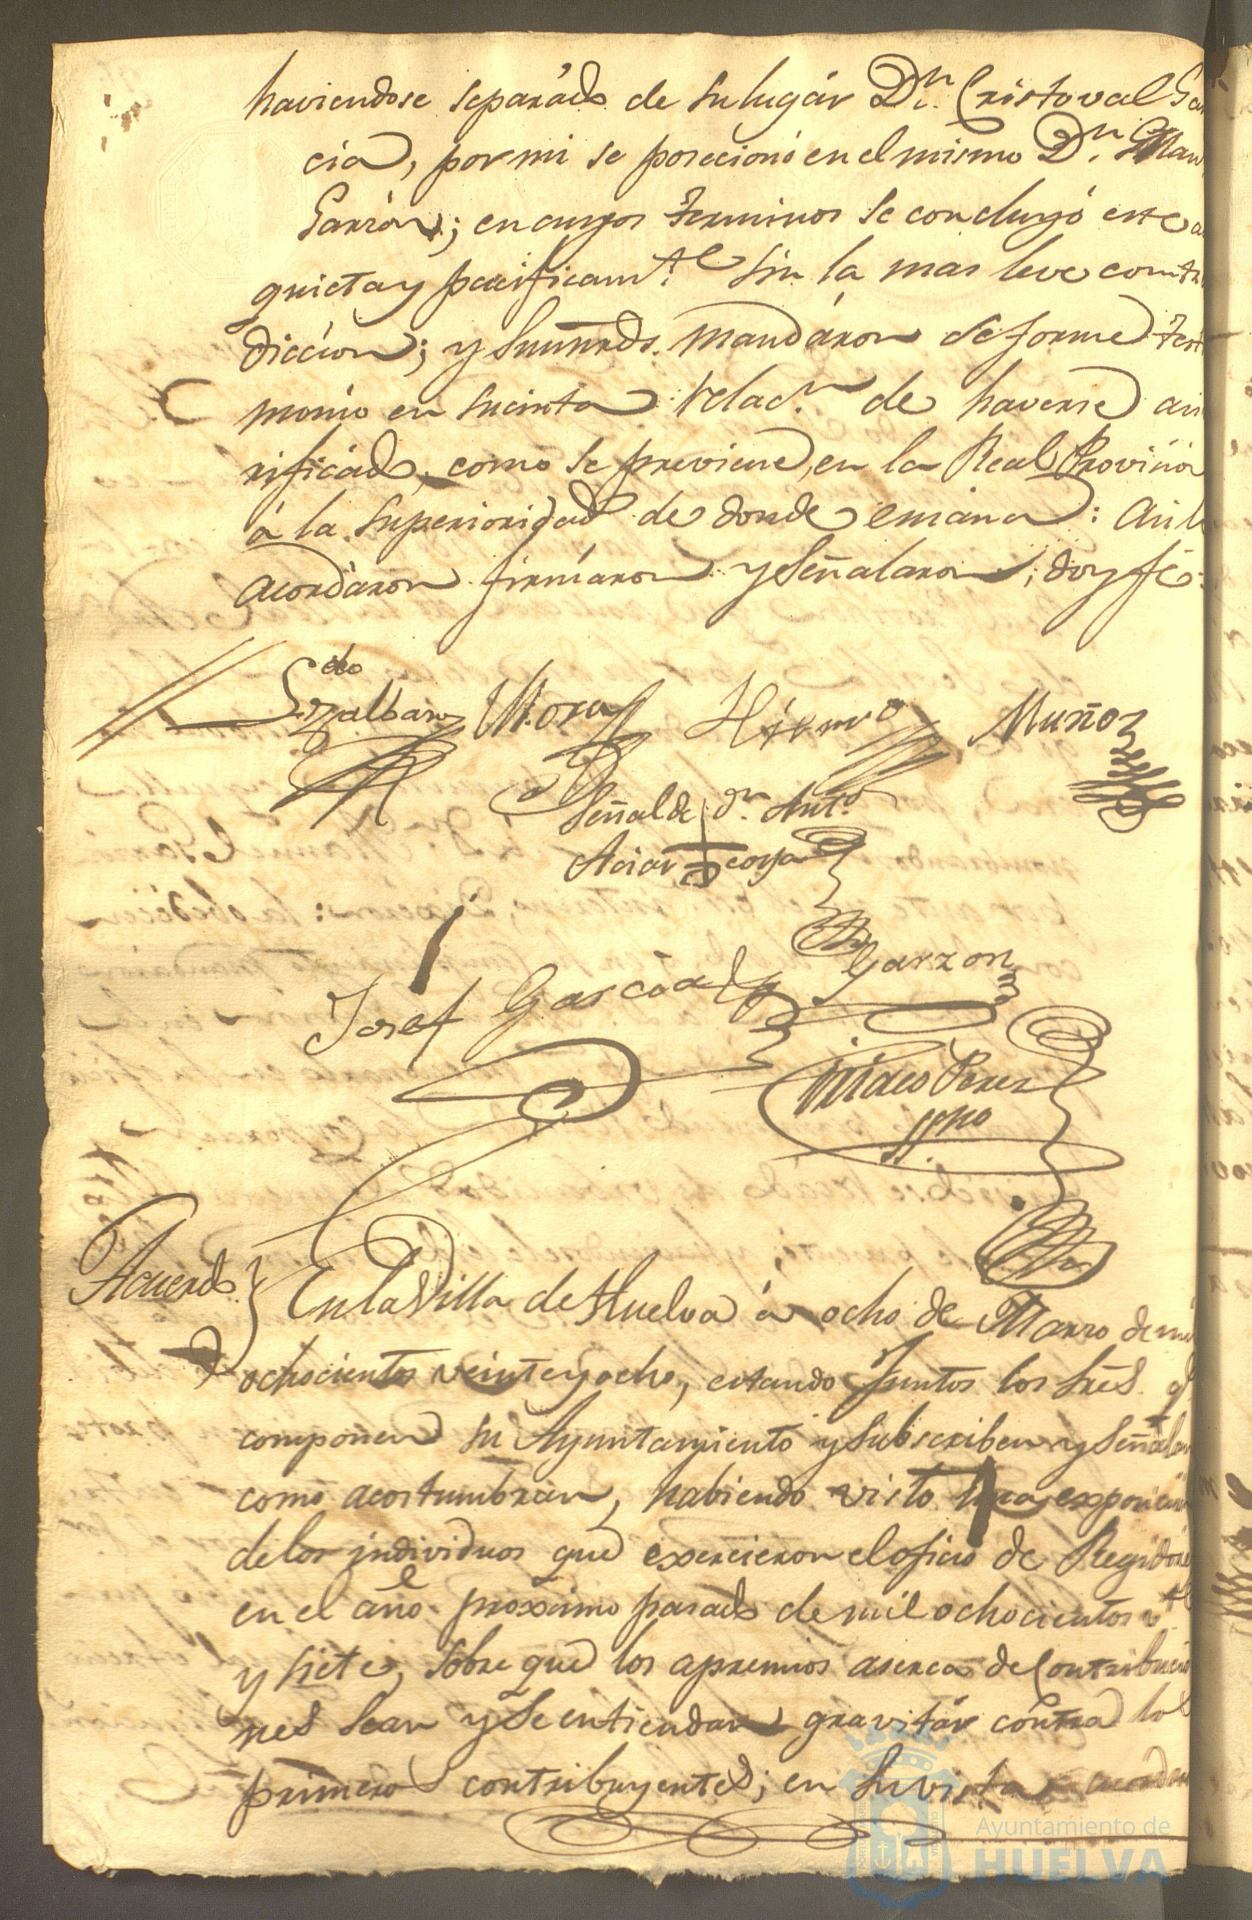 haviendose separado de su lugár Dn. Cristoval Gar
cia, por mi se posecionó en el mismo Dn. Man
Garzón; en cuyos terminos se concluyó este a
quieta y pacificamte. sin la mas leve contra
diccion; y sus mrds. mandáron se forme testi
monio en sucinta relacn. de haverse asi
rificádo, como se previene, en la Real Provision
á la superioridad de donde emana: Asi lo
acordáron firmáron y señalaron; doy fé.
Mora Hierro Muñoz
Señal de Dn. Anto.
Garzon
Josef Garcia
Perez
Acuerdo } En la Villa de Huelva á ocho de Marzo de mil
ochocientos veinte y ocho, estando Juntos los Sres. q
componen su Ayuntamiento y subscriben y señalan
como acostumbran, habiendo visto una exposicion
de los individuos que exercieron el oficio de Regidores
en el año proximo pasado de mil ochocientos vte
y siete, sobre que los apremios aserca de Contribucio
nes sean y se entiendan gravitár contra los
primeros contribuyentes; en su vista acordaron
Ayuntamiento de
HUELVA